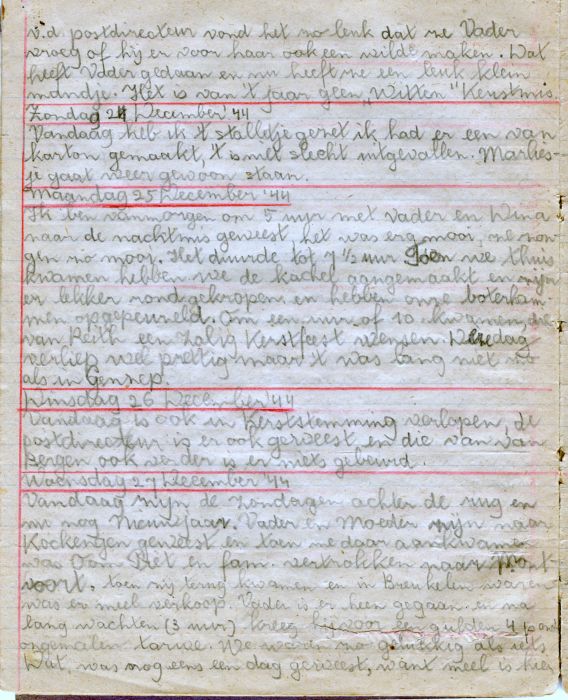 v.d postdirecteur vond het zo leuk dat ze Vader
vroeg of hij er voor haar ook een wilde maken. Wat
heeft Vader gedaan en nu heeft ze een leuk klein
mandje. Het is van 't jaar geen "Witten" Kerstmis.
Zondag 24 December '44
Vandaag heb ik 't stalletje gezet ik had er een van
karton gemaakt, 't is niet slecht uitgevallen. Marlies-
je gaat weer gewoon staan.
Maandag 25 December '44
Ik ben vanmorgen om 5 uur met Vader en Wina
naar de nachtmis geweest, het was erg mooi, ze zon
gen zo mooi. Het duurde tot 7 ½ uur Toen we thuis
kwamen hebben we de kachel aangemaakt en zijn
er lekker rondgekropen en hebben onze boterham
men opgepeuzeld. Om een uur of 10 kwamen, die
van Reith een Zalig Kerstfeest wensen. De dag
verliep wel prettig maar 't was lang niet zo
als in Gennep.
Dinsdag 26 December '44
Vandaag is ook in Kerststemming verlopen, de
postdirecteur is er ook geweest en die van van
Bergen ook verder is er niets gebeurd.
Woensdag 27 December '44
Vandaag zijn de Zondagen achter de rug en
nu nog Nieuwjaar. Vader en Moeder zijn naar
Kockengen geweest en toen ze daar aankwamen
was Oom Piet en fam. vertrokken naar Mont-
voort. toen zij terug kwamen en in Breukelen waren
was er meel verkoop. Vader is er heen gegaan en na
lang wachten (3 uur) kreeg hij voor een gulden 4 pond
ongemalen tarwe. We waren zo gelukkig als iets
Dat was nog eens een dag geweest, want meel is hier